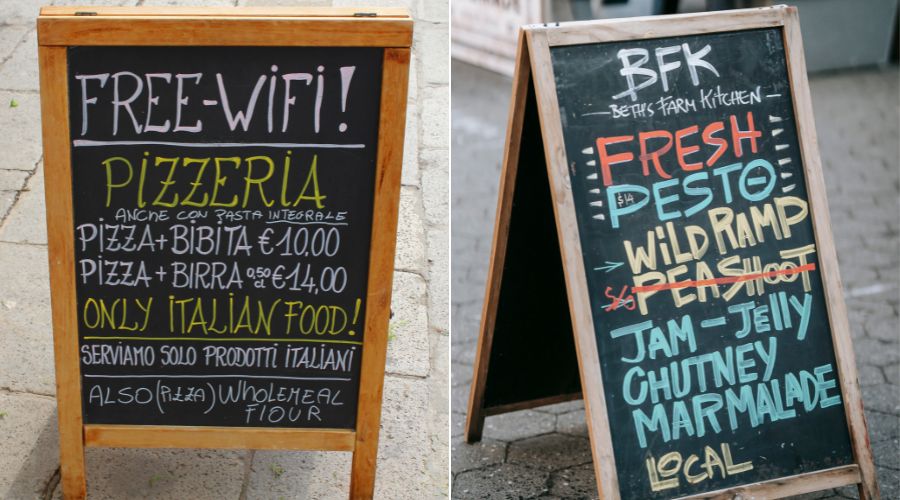 FREE-WiFi!
PiZZERiA
ANCHE CON PASTA INTEGRALE
PiZZA+BiBITA €10.00
PiZZA+BIRRA 0,50 cl €14,00
ONLY ITALIAN FOOD!
SERVIAMO SOLO PRODOTTI ITALIANI
ALSO (PIZZA) WHOLEMEAL
FLOUR
BFK
BETH'S FARM KITCHEN
FRESH
$14 PESTO
WILD RAMP
S/O PEA SHOOT
JAM - JELLY
CHUTNEY
MARMALADE
LOCAL